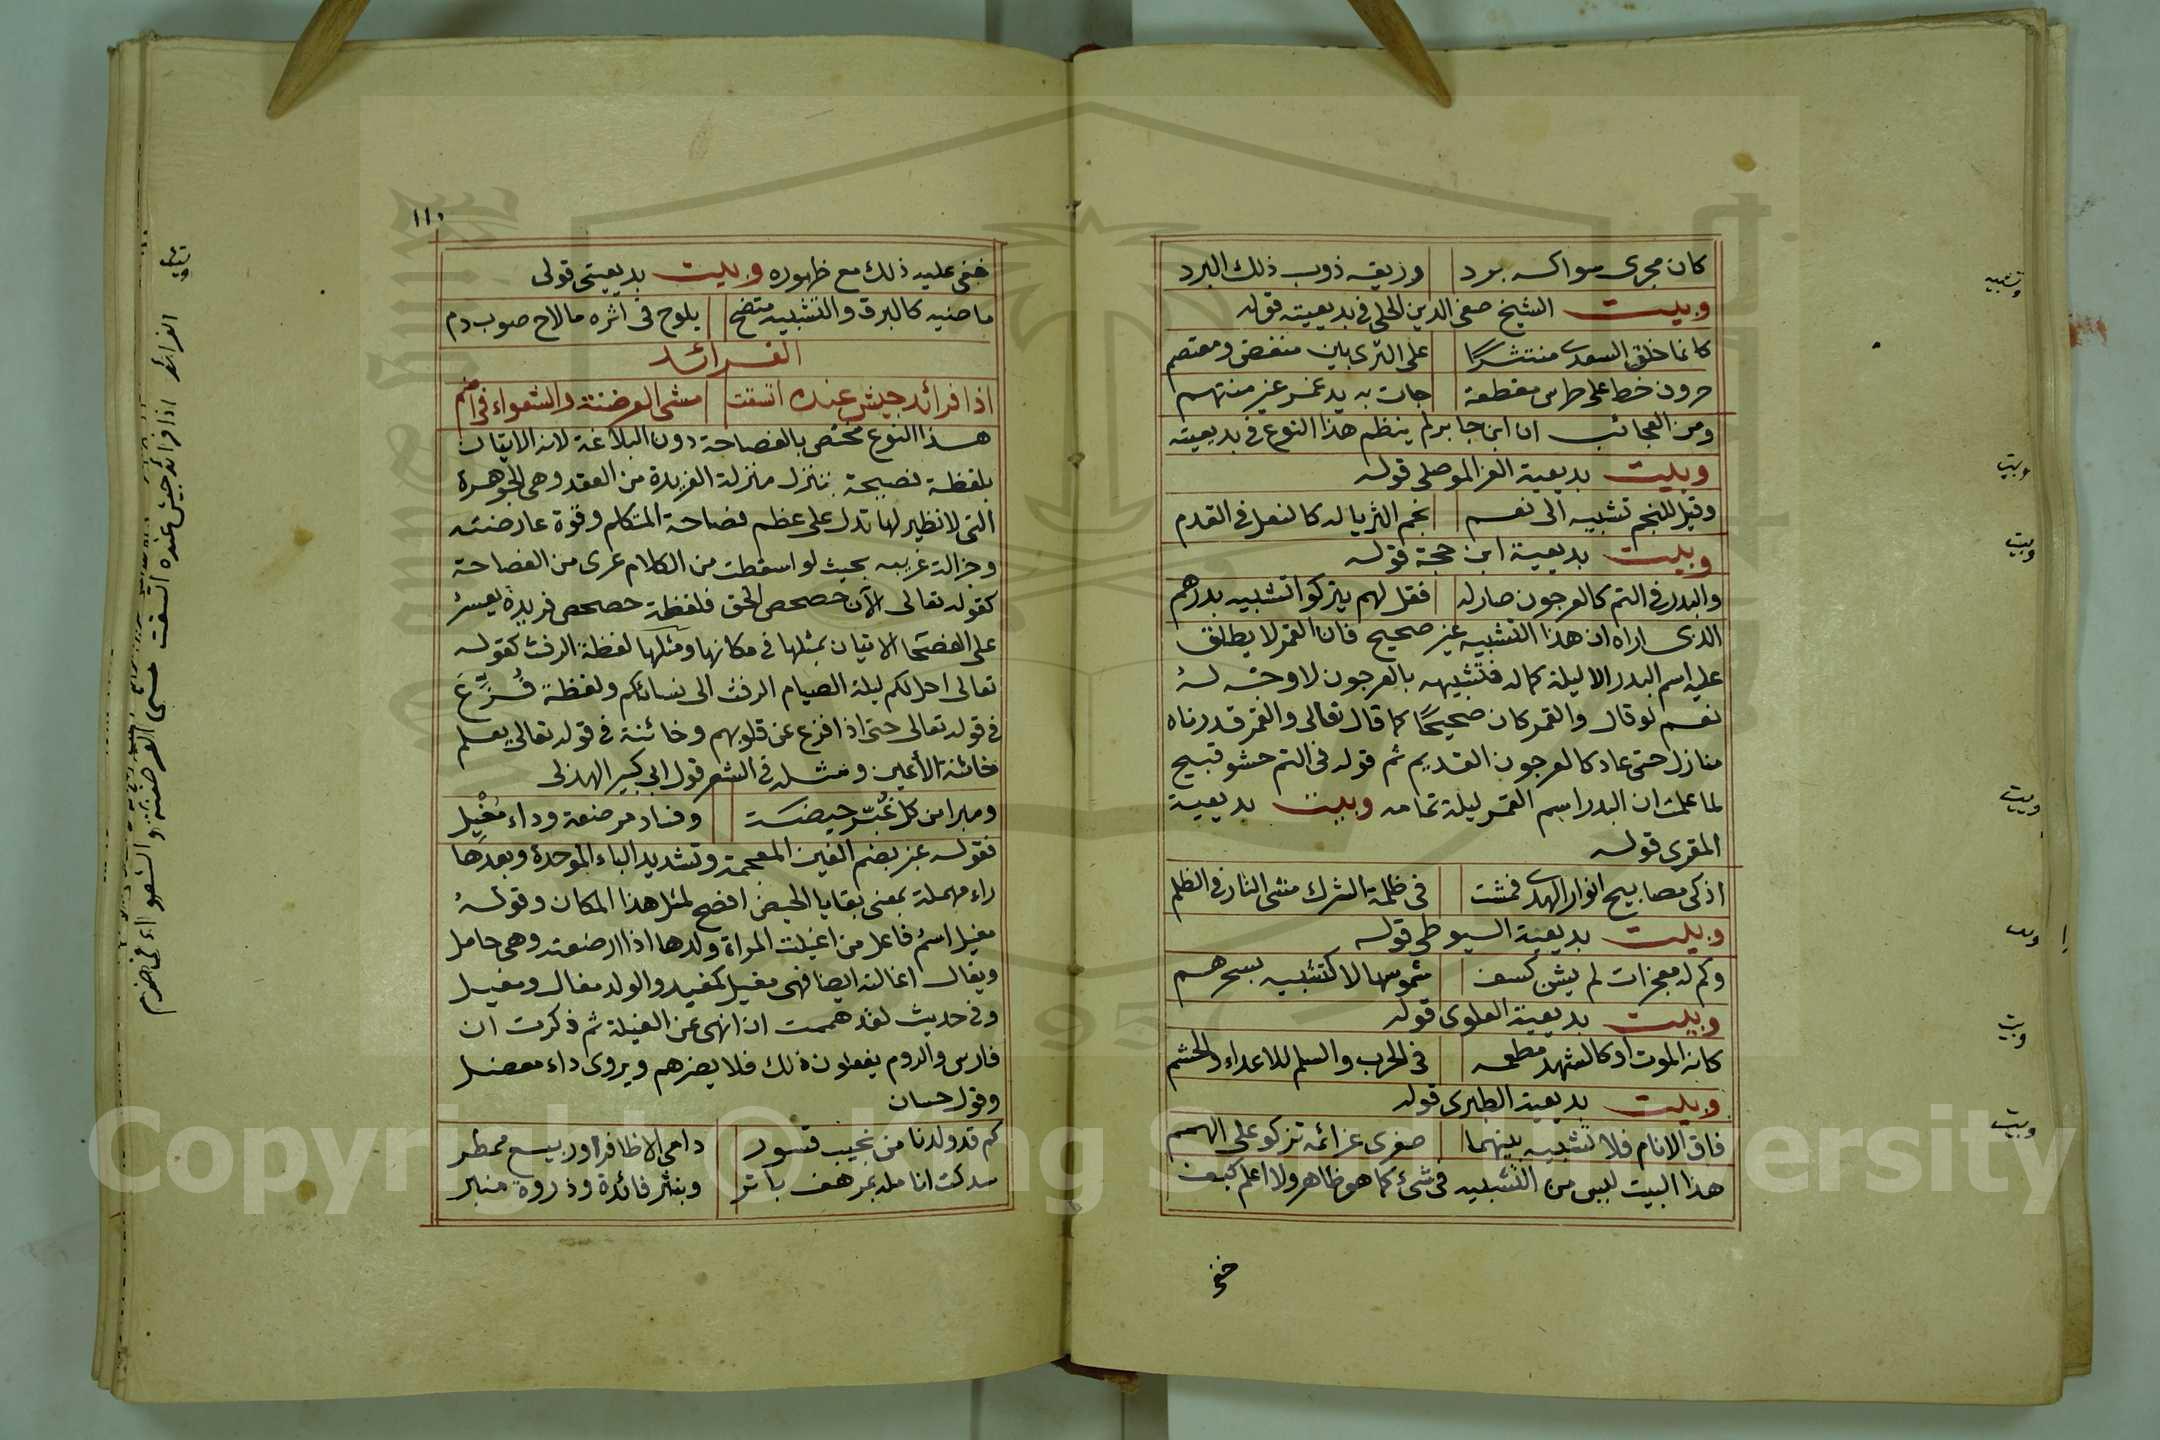 كان مجرى سواكه برد وريقه ذوب ذلك البرد
وبيت الشيخ صفي الدين الحلي في بديعيته قوله
كانما حلق السعدي منتشرا على الثرى بين منفض ومنفصم
حروف خط على طرس مقطعة جات به يد غمر غير منفهم
ومن العجائب ان ابن جابر لم ينظم هذا النوع في بديعيته
وبيت بديعية العز الموصلي قوله
وقيل للنجم تشبيه الى نعم نجم الثريا له كالنعل في القدم
وبيت بديعية ابن حجة قوله
والبدر في التم كالعرجون صار له فقل لهم يتركوا تشبيه بدرهم
الذي اراه ان هذا التشبيه غير صحيح فان القمر لا يطلق
عليه اسم البدر الا ليلة كماله فتشبيهه بالعرجون لا وجه له
نعم لو قال والقمر كان صحيحا كما قال تعالى والقمر قدرناه
منازل حتى عاد كالعرجون القديم ثم قوله في التم حشو قبيح
لما علمت ان البدر اسم القمر ليلة تمامه وبيت بديعية
المقري قوله
اذكى مصابيح انوار الهدى فمشت في ظلمة الشرك مشى النار في الظلم
وبيت بديعية السيوطي قوله
وكم له معجزات لم يشن كسف شموسها لا كتشبيه بسحرهم
وبيت بديعية العلوي قوله
كانه الموت او كالشهد مطعمه في الحرب والسلم للاعداء والحشم
وبيت بديعية الطبري قوله
فاق الانام فلا تشبيه بينهما صغرى عزائمه تزكو على الهمم
هذا البيت ليس من التشبيه في شيء كما هو ظاهر ولا اعلم كيف
خفي
وتشبيه
وبيت
وبيت
وبيت
وبيت
وبيت
وبيت
١١٠
خفي عليه ذلك مع ظهوره وبيت بديعيتي قولي
ماضيه كالبرق والتشبيه متضح يلوح في اثره مالاح صوب دم
الفرائد
اذا فرائد جيش عنده اتسقت مشى العرضنة والشعواء في
هذا النوع مختص بالفصاحة دون البلاغة لانه الاتيان
بلفظة فصيحة تتنزل منزلة الفريدة من العقد وهي الجوهرة
التي لا نظير لها تدل على عظم فصاحة المتكلم وقوة عارضته
وجزالة عربيه بحيث لو اسقطت من الكلام عرى من الفصاحة
كقوله تعالى الآن حصحص الحق فلفظة حصحص فريدة يعسر
على الفصحا الاتيان بمثلها في مكانها ومثلها لفظة الرفث كقوله
تعالى احل لكم ليلة الصيام الرفث الى نسائكم ولفظة فُزِّعَ
في قوله تعالى حتى اذا فزع عن قلوبهم وخائنة في قوله تعالى يعلم
خائنة الأعين ومثله في الشعر قول ابي كبير الهذلي
ومبرا من كل غُبّر حيضة وفساد مرضعة وداء مُغْيِل
فقوله غبر بضم الغين المعجمة وتشديد الباء الموحدة وبعدها
راء مهملة بمعنى بقايا الحيض افصح لمثل هذا المكان وقوله
مغيل اسم فاعل من اغيلت المراة ولدها اذا ارضعته وهي حامل
ويقال اغالته ايضا فهي مغيل كمفيد والولد مغال ومغيل
وفي حديث لقد هممت ان انهى عن الغيلة ثم ذكرت ان
فارس والروم يفعلون ذلك فلا يضرهم ويروى داء معضل
وقول حسان
كم قد ولدنا من نجيب قسور دامي الاظافر او ربيع ممطر
سدكت انامله بمرهف باتر وبنثر فائدة وذروة منبر
وبيت
الفرائد اذا فرائد جيش عنده اتسقت مشى العرضنة والشعواء في
Copyright © King Saud University